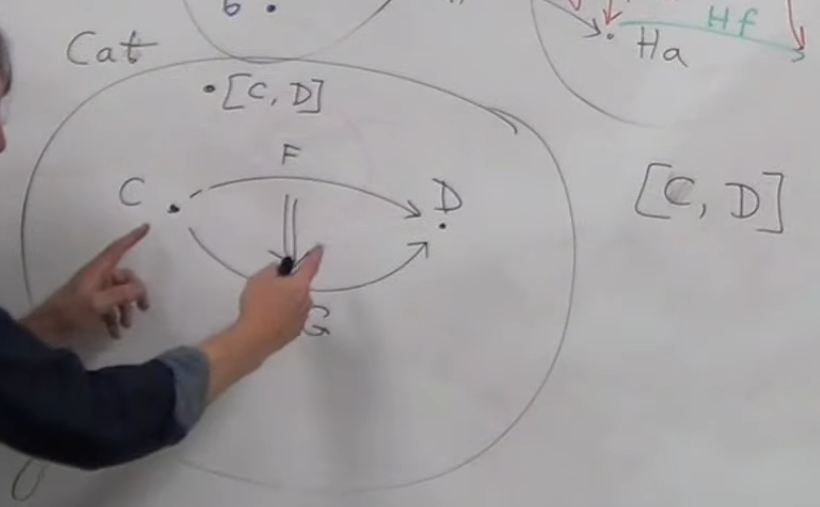 b
Hf
Ha
Cat
[C, D]
F
C
D
[C, D]
G